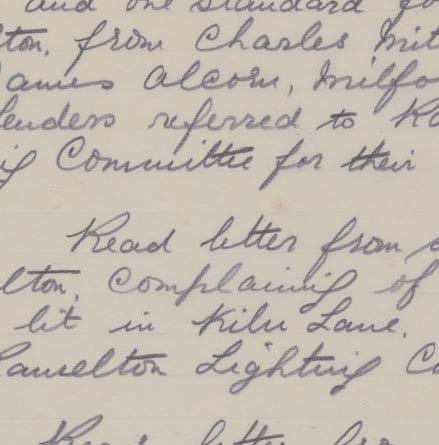 and one standard fo
lton, from Charles Mit
James Alcorn, Milfo
tenders referred to Ra
g Committee for their
Read letter from
lton, complaining of
lit in Kiln Lane.
Ramelton Lighting C
Read letter fro